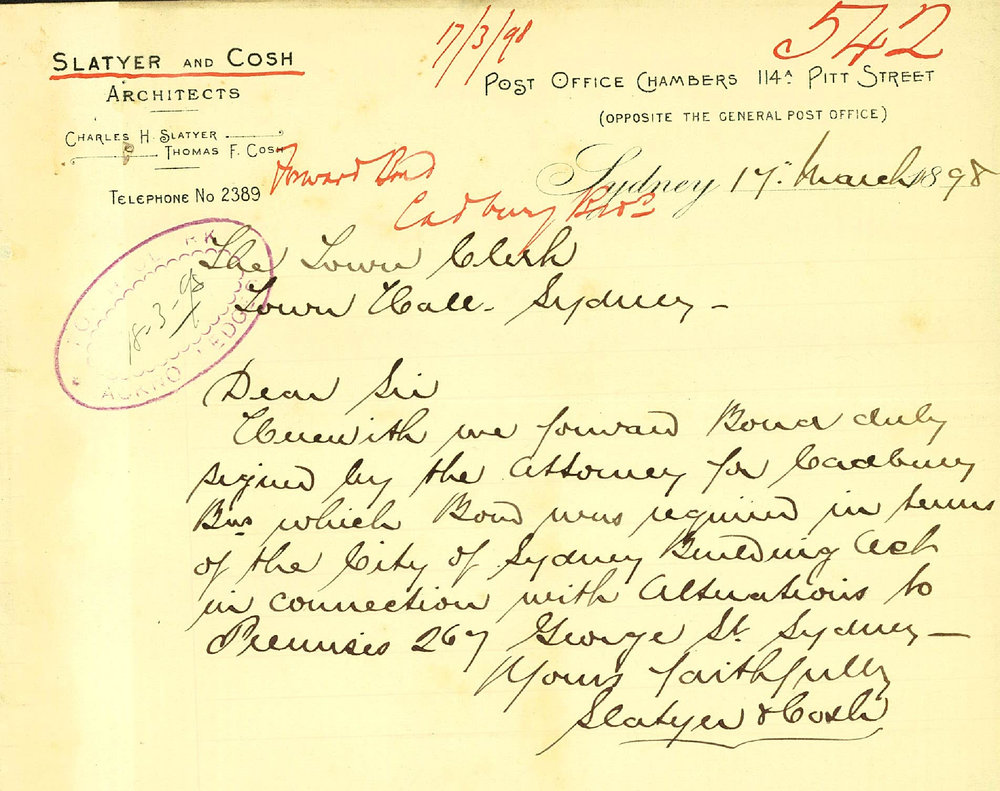 17/3/98
542
SLATYER AND COSH
ARCHITECTS
CHARLES H. SLATYER
THOMAS F. COSH
TELEPHONE No 2389
POST OFFICE CHAMBERS 114A PITT STREET
(OPPOSITE THE GENERAL POST OFFICE)
Sydney 17: March 1898
Forward Bond
Cadbury Bros
The Town Clerk
Town Hall. Sydney –
18-3-98
ACKNOWLEDGED
Dear Sir
Herewith we forward Bond duly
signed by the Attorney for Cadbury
Bros which Bond was required in terms
of the City of Sydney Building Act
in connection with Alterations to
Premises 267 George St. Sydney –
Yours faithfully
Slatyer & Cosh